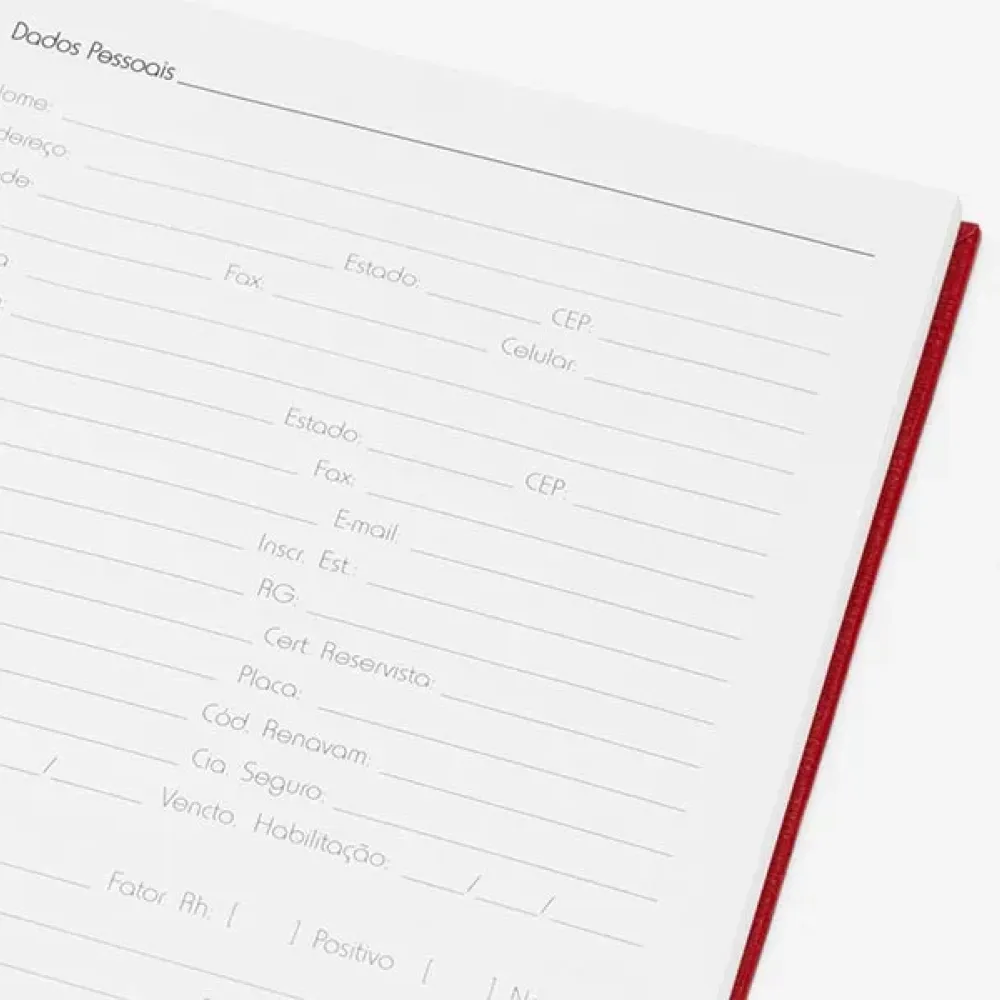 Dados Pessoais
ome:
dereço:
de: Estado: CEP:
Fax: Celular:
Estado: CEP:
Fax:
E-mail:
Inscr. Est.:
RG:
Cert. Reservista:
Placa:
Cód. Renavam:
Cia. Seguro:
/ Vencto. Habilitação: / /
Fator Rh: [ ] Positivo [ ]